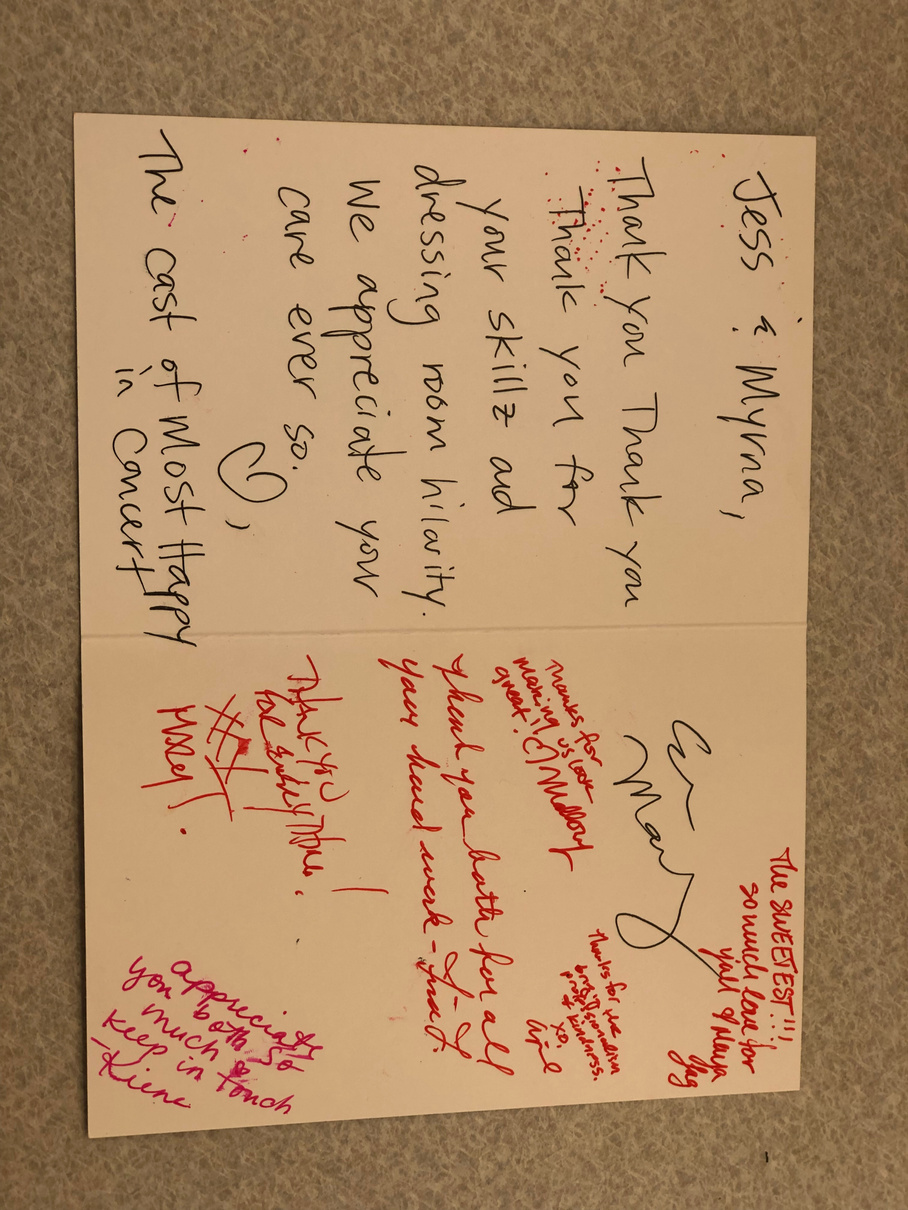 Jess & Myrna,
Thank you Thank you
Thank you for
your skillz and
dressing room hilarity.
We appreciate you
care ever so.
♡,
The cast of Most Happy
in Concert
The SWEETEST!!!
so much love for
y'all
Mary
Thanks for
making us look
great!!
Thanks for the
professionalism
& kindness.
xo,
Thank you both for all
your hard work -
THANK YOU
FOR EVERYTHING!
XXX
MIKEY!
appreciate
you both so
much &
keep in touch
-Kiena